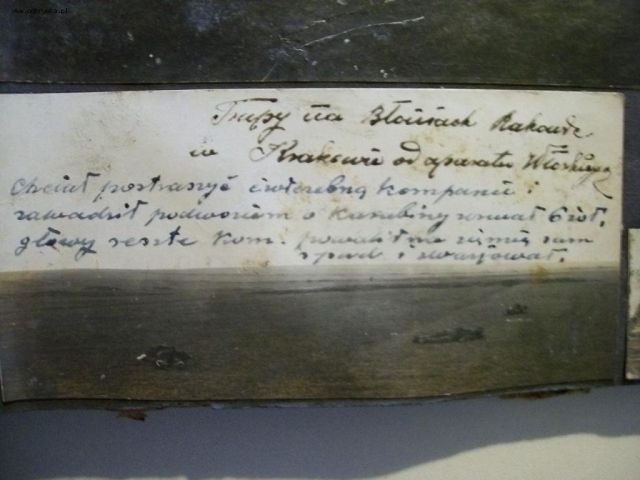 Trupy na Błoniach Rakowic
w Krakowie od aparatu Włoskiego
chciał postraszyć ćwiczebną kompanię i
zawadził podwoziem o karabiny urwał 6 żoł.
głowy resztę kom. powalił na ziemię sam
spadł i zwarjował.